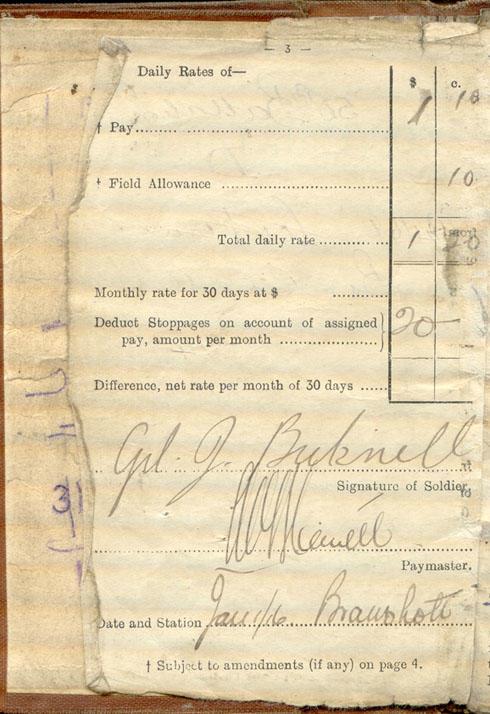 — 3 —
Daily Rates of—
$ c.
† Pay 1 10
† Field Allowance 10
Total daily rate 1 20
Monthly rate for 30 days at $
Deduct Stoppages on account of assigned
pay, amount per month 20 —
Difference, net rate per month of 30 days
Cpl. J. Bucknell
Signature of Soldier.
Paymaster.
Date and Station Jan 1/16 Bramshott
† Subject to amendments (if any) on page 4.